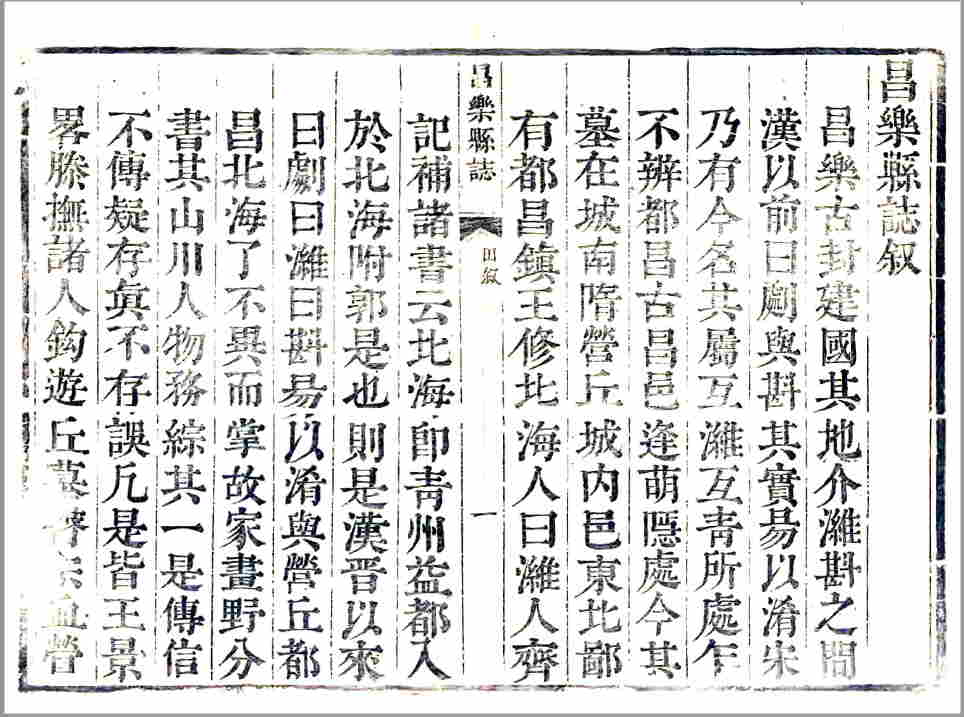 昌樂縣誌叙
昌樂古封建國其地介濰斟之間
漢以前曰劇與斟其實易以淆宋
乃有今名其屬互濰互青所處乍
不辨都昌古昌邑逢萌隱處今其
墓在城南隋營丘城内邑東北鄙
有都昌鎮王修北海人曰濰人齊
昌樂縣誌
叙
一
記補諸書云北海卽青州益都入
於北海附郭是也則是漢晋以來
曰劇曰濰曰斟易以淆與營丘都
昌北海了不異而掌故家畫野分
書其山川人物務綜其一是傳信
不傳疑存眞不存誤凢是皆王景
畧滕撫諸人鈎遊丘墓
營